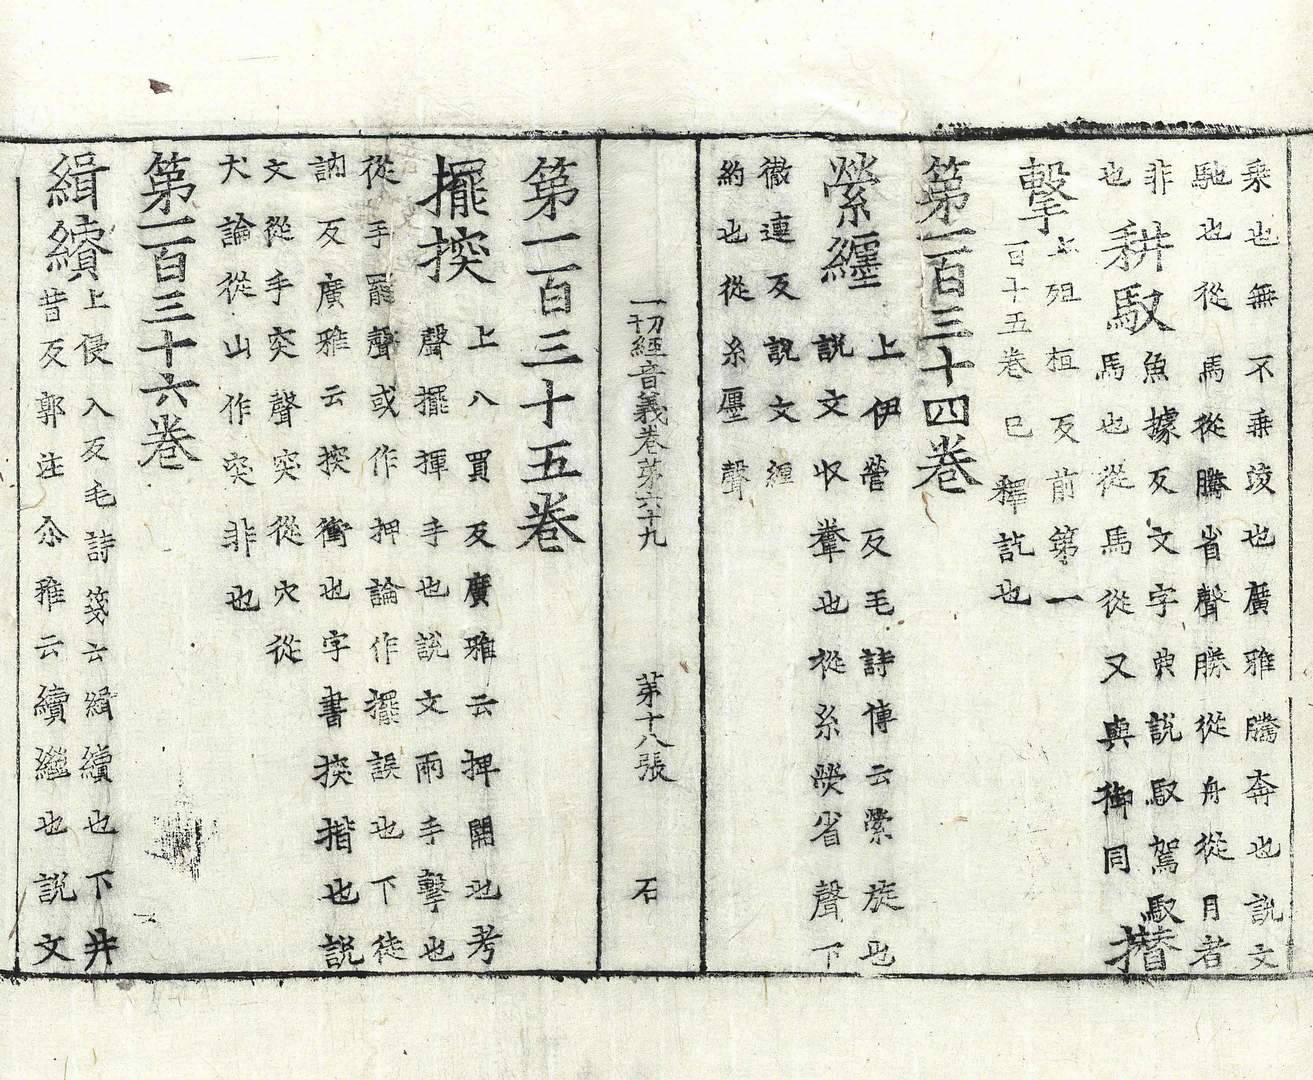 乗也無不乗淩也廣雅騰奔也說文
馳也從馬從騰省聲勝從舟從月者
非
也
耕馭
魚據反文字典說馭駕馭
馬也從馬從又與御同
上殂桓反前第一
百十五卷已釋訖也
第一百三十四卷
縈纏
上伊營反毛詩傳云縈旋也
說文收韏也從糸熒省聲下
徹連反說文纏
約也從糸㕓聲
一切經音義卷苐六十九 苐十八張 石
第一百三十五卷
擺揬
上八買反廣雅云捭開也考
聲擺揮手也說文兩手擊也
從手罷聲或作押論作擺誤也下徒
訥反廣雅云揬衝也字書揬揩也說
文從手突聲突從穴從
犬論從山作突非也
第一百三十六卷
緝續
上侵入反毛詩箋云緝續也下井
昔反郭注尒雅云續繼也說文